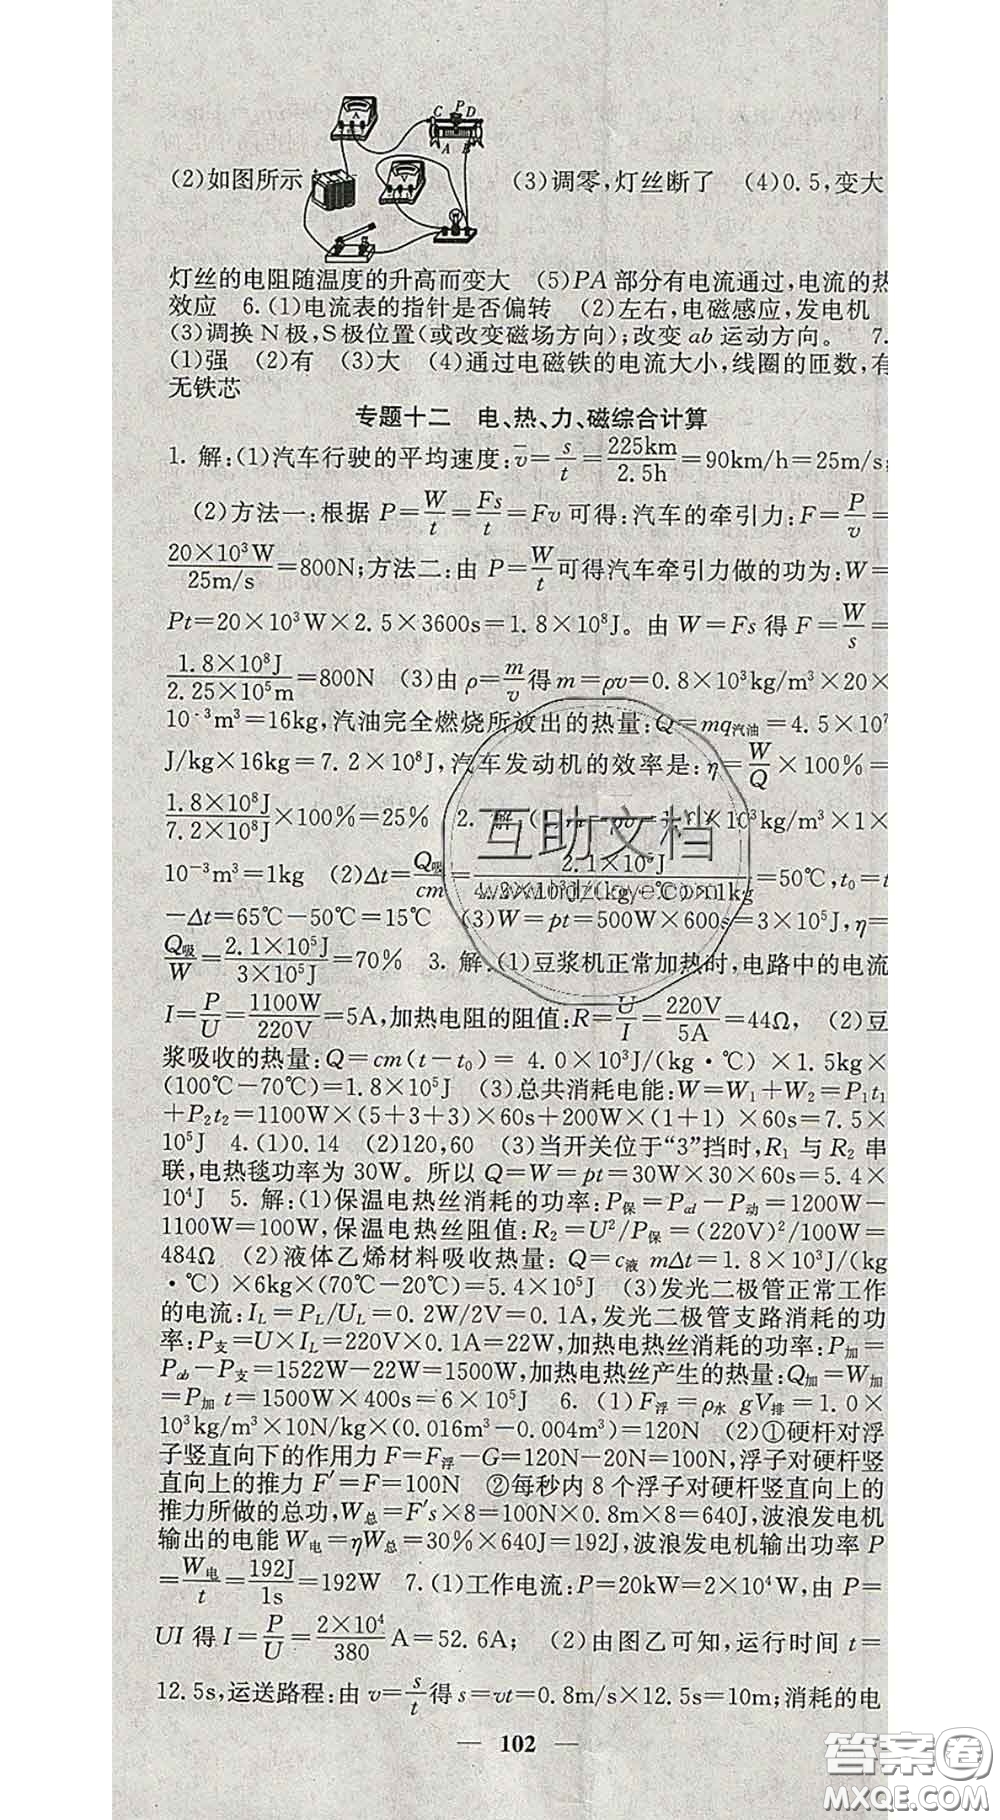 A
C P D
A B
V
(2)如图所示 (3)调零,灯丝断了 (4)0.5,变大
灯丝的电阻随温度的升高而变大 (5)PA部分有电流通过,电流的热
效应 6.(1)电流表的指针是否偏转 (2)左右,电磁感应,发电机
(3)调换N极,S极位置(或改变磁场方向);改变ab运动方向。 7.
(1)强 (2)有 (3)大 (4)通过电磁铁的电流大小,线圈的匝数,有
无铁芯
专题十二 电、热、力、磁综合计算
1. 解:(1)汽车行驶的平均速度:v̄=s/t=225km/2.5h=90km/h=25m/s;
(2)方法一:根据 P=W/t=Fs/t=Fv可得:汽车的牵引力:F=P/v=
20×10³W/25m/s=800N;方法二:由 P=W/t可得汽车牵引力做的功为:W=
Pt=20×10³W×2.5×3600s=1.8×10⁸J。由 W=Fs 得 F=W/s=
1.8×10⁸J/2.25×10⁵m=800N (3)由 ρ=m/v得 m=ρv=0.8×10³kg/m³×20×
10⁻³m³=16kg,汽油完全燃烧所放出的热量:Q=mq汽油=4.5×10⁷
J/kg×16kg=7.2×10⁸J,汽车发动机的效率是:η=W/Q×100%=
1.8×10⁸J/7.2×10⁸J×100%=25% 2. 解 ×10³kg/m³×1×
10⁻³m³=1kg (2)Δt=Q吸/cm=2.1×10⁵J/4.2×10³J/(kg·℃)×1kg=50℃,t₀=t
-Δt=65℃-50℃=15℃ (3)W=pt=500W×600s=3×10⁵J,η=
Q吸/W=2.1×10⁵J/3×10⁵J=70% 3. 解:(1)豆浆机正常加热时,电路中的电流
I=P/U=1100W/220V=5A,加热电阻的阻值:R=U/I=220V/5A=44Ω, (2)豆
浆吸收的热量:Q=cm(t-t₀)= 4.0×10³J/(kg·℃)×1.5kg×
(100℃-70℃)=1.8×10⁵J (3)总共消耗电能:W=W₁+W₂=P₁t₁
+P₂t₂=1100W×(5+3+3)×60s+200W×(1+1)×60s=7.5×
10⁵J 4.(1)0.14 (2)120,60 (3)当开关位于“3”挡时,R₁ 与 R₂ 串
联,电热毯功率为 30W。所以 Q=W=pt=30W×30×60s=5.4×
10⁴J 5. 解:(1)保温电热丝消耗的功率:P保=Pad-P动=1200W-
1100W=100W,保温电热丝阻值:R₂=U²/P保=(220V)²/100W=
484Ω (2)液体乙烯材料吸收热量: Q=c液 mΔt=1.8×10³J/(kg
·℃)×6kg×(70℃-20℃)=5.4×10⁵J (3)发光二极管正常工作
的电流:IL=PL/UL=0.2W/2V=0.1A,发光二极管支路消耗的功
率:P支=U×IL=220V×0.1A=22W,加热电热丝消耗的功率:P加=
Pab-P支=1522W-22W=1500W,加热电热丝产生的热量:Q加=W加
=P加 t=1500W×400s=6×10⁵J 6. (1)F浮=ρ水 gV排=1.0×
10³kg/m³×10N/kg×(0.016m³-0.004m³)=120N (2)①硬杆对浮
子竖直向下的作用力 F=F浮-G=120N-20N=100N,浮子对硬杆竖
直向上的推力 F′=F=100N ②每秒内 8 个浮子对硬杆竖直向上的
推力所做的总功,W总=F′s×8=100N×0.8m×8=640J,波浪发电机
输出的电能 W电=ηW总=30%×640J=192J,波浪发电机输出功率 P
=W电/t=192J/1s=192W 7.(1)工作电流:P=20kW=2×10⁴W,由 P=
UI 得 I=P/U=2×10⁴/380A=52.6A; (2)由图乙可知,运行时间 t=
12.5s,运送路程:由 v=s/t得 s=vt=0.8m/s×12.5s=10m;消耗的电
— 102 —
互助文档
答案圈
MXQE.COM